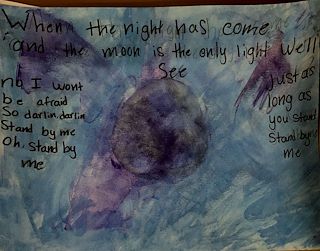 When the night has come
and the moon is the only light we'll
See
no I wont
be afraid
So darlin, darlin
Stand by me
Oh, stand by
me
Just as
long as
you stand
Stand by
me